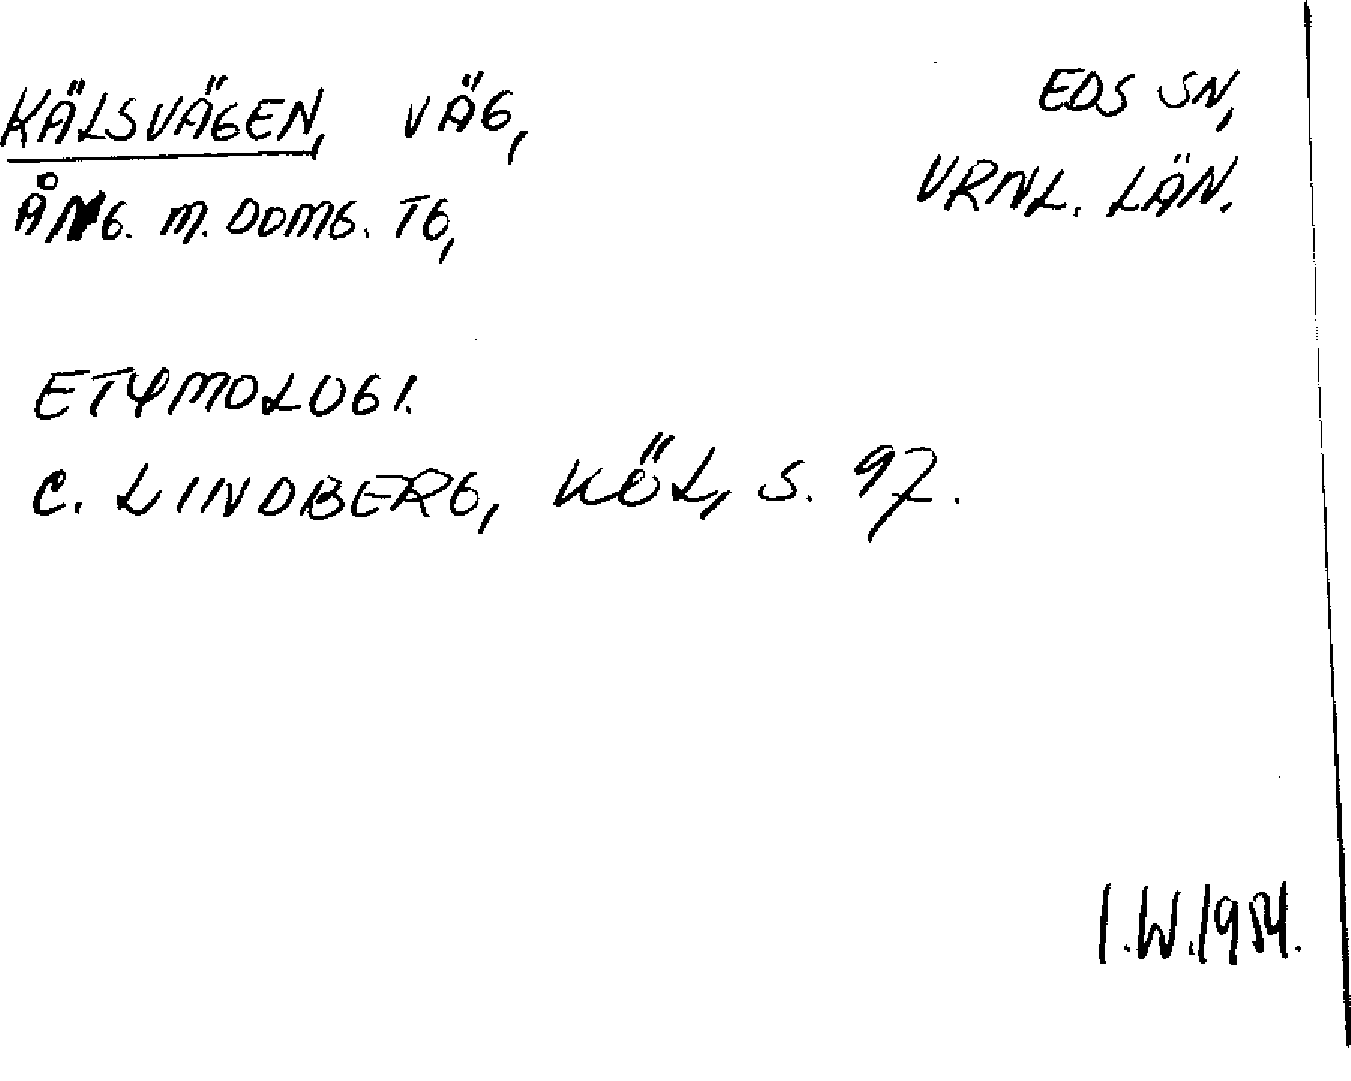 KÄLSVÄGEN, VÄG,
EDS SN,
ÅNG. M. DOMG. TG,
VRML. LÄN.
ETYMOLOGI.
C. LINDBERG, KÖL, S. 97.
I.W.1984.